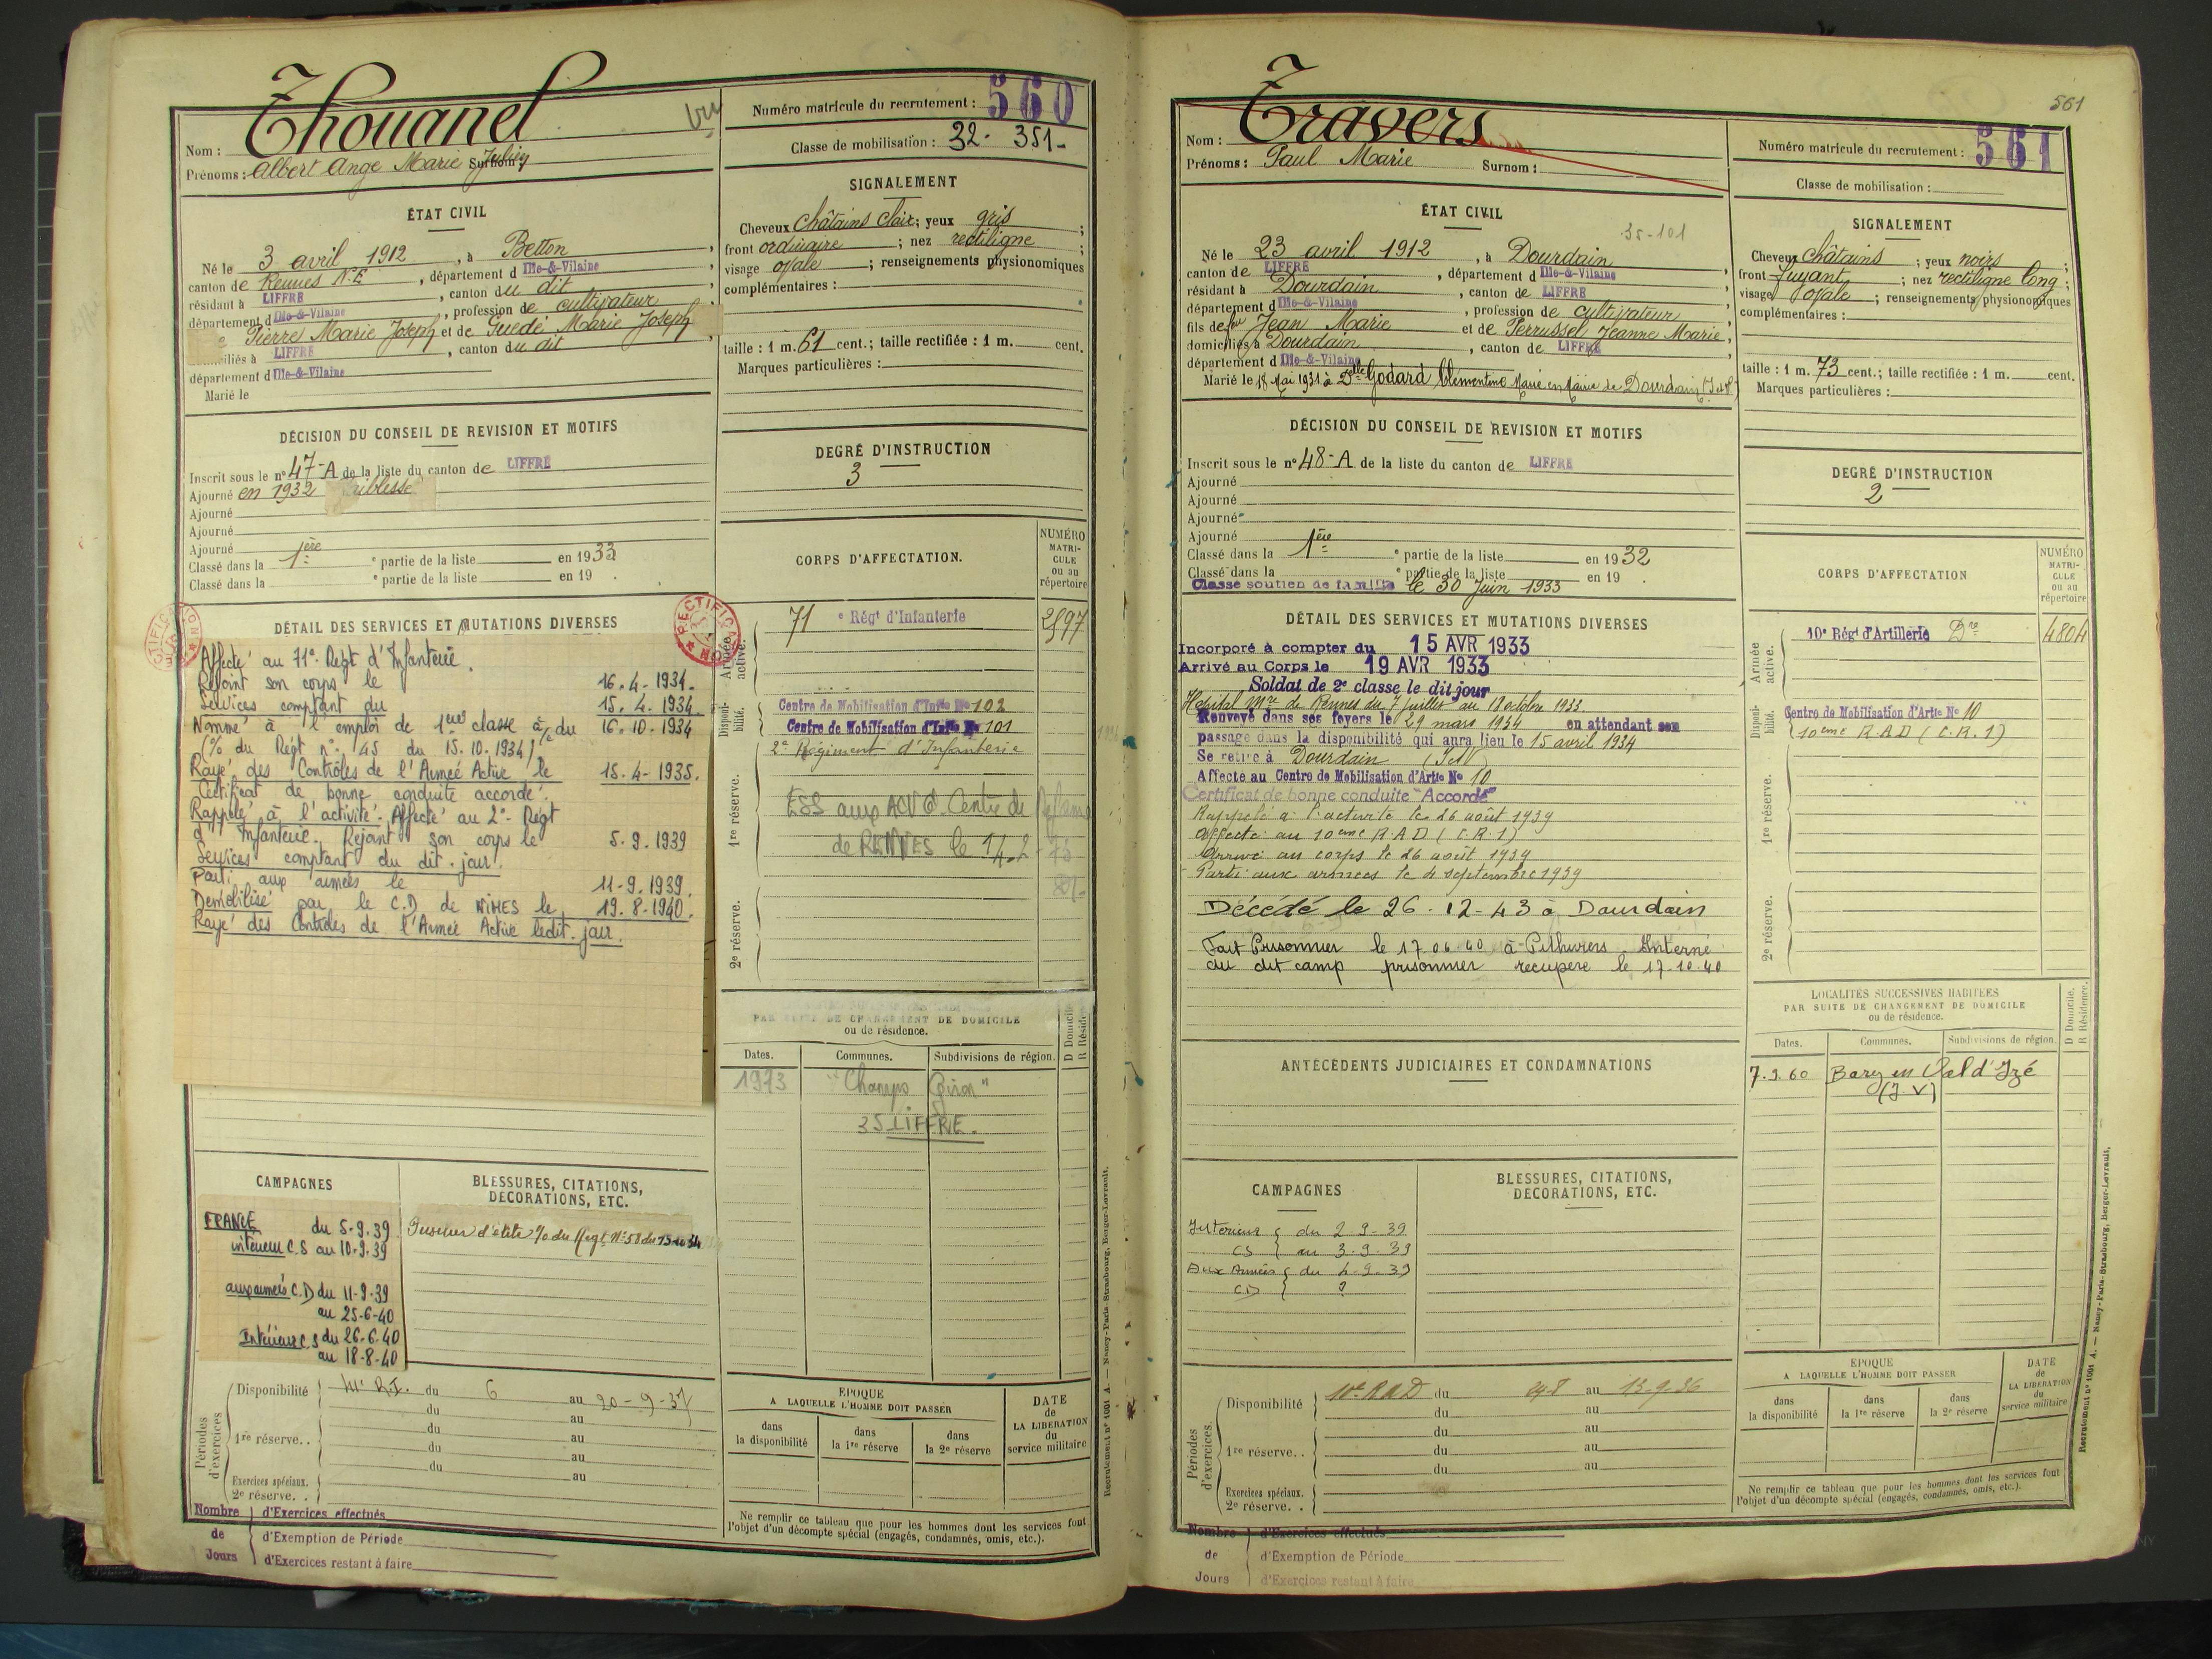 Thouanel
vu
Nom :
Prénoms : Albert Ange Marie Julien Surnom :
Numéro matricule du recrutement : 560
Classe de mobilisation : 32 - 351 -
ÉTAT CIVIL
Né le 3 avril 1912, à Betton,
canton de Rennes N.E, département d Ille-&-Vilaine,
résidant à LIFFRÉ, canton du dit,
département d Ille-&-Vilaine, profession de cultivateur
Pierre Marie Joseph et de Guedé Marie Joseph
iliés à LIFFRÉ, canton du dit
département d Ille-&-Vilaine
Marié le
SIGNALEMENT
Cheveux châtains clair; yeux gris;
front ordinaire; nez rectiligne;
visage ovale; renseignements physionomiques
complémentaires :
taille : 1 m. 61 cent.; taille rectifiée : 1 m. cent.
Marques particulières :
DÉCISION DU CONSEIL DE REVISION ET MOTIFS
Inscrit sous le n° 47-A de la liste du canton de LIFFRÉ
Ajourné en 1932 faiblesse
Ajourné
Ajourné
Ajourné
Classé dans la 1ère e partie de la liste en 1933
Classé dans la e partie de la liste en 19 .
DEGRÉ D'INSTRUCTION
3
CORPS D'AFFECTATION.
NUMÉRO
MATRI-
CULE
ou au
répertoire
Armée active.
71 e Régt d'Infanterie 2897
Disponi-bilité.
Centre de Mobilisation d'Infie No 102
Centre de Mobilisation d'Infie No 101
2e Régiment d'Infanterie
1re réserve.
ESS aux ACVG Centre de
de RENNES le 14.2
2e réserve.
DÉTAIL DES SERVICES ET MUTATIONS DIVERSES
RECTIFICATION
Affecté au 71e Regt d'Infanterie.
Rejoint son corps le 16.4.1934.
Services comptant du 15.4.1934.
Nommé à l'emploi de 1ère classe à/c du 16.10.1934
(% du Régt n° 45 du 15.10.1934)
Rayé des Contrôles de l'Armée Active le 15-4-1935.
Certificat de bonne conduite accordé.
Rappelé à l'activité. Affecté au 2e Régt
d'Infanterie. Rejoint son corps le 5.9.1939
Services comptant du dit jour.
Parti aux armées le 11-9.1939.
Démobilisé par le C.D de NIMES le 19.8.1940.
Rayé des Contrôles de l'Armée Active ledit jour.
PAR SUITE DE CHANGEMENT DE DOMICILE
ou de résidence.
D Domicile
R Réside
Dates.
Communes.
Subdivisions de région.
1973 "Champs Giron"
35 LIFFRE.
CAMPAGNES
FRANCE du 5-9.39
intérieur C.S au 10-9.39
aux armées C.D du 11-9-39
au 25-6-40
Intérieur C.S du 26-6.40
au 18-8-40
BLESSURES, CITATIONS,
DÉCORATIONS, ETC.
d'élite % du Régt N° 58 du 15-10 34
Périodes d'exercices
Disponibilité 41e R.I. du 6 au 20-9-37
du au
1re réserve.. du au
du au
du au
Exercices spéciaux.
2e réserve. . au
Nombre de Jours
d'Exercices effectués
d'Exemption de Période
d'Exercices restant à faire
ÉPOQUE
A LAQUELLE L'HOMME DOIT PASSER
dans la disponibilité
dans la 1re réserve
dans la 2e réserve
DATE
de
LA LIBÉRATION
du
service militaire
Ne remplir ce tableau que pour les hommes dont les services font
l'objet d'un décompte spécial (engagés, condamnés, omis, etc.).
Recrutement n° 1001 A. — Nancy-Paris-Strasbourg, Berger-Levrault.
561
Travers
Nom :
Prénoms : Paul Marie Surnom :
Numéro matricule du recrutement : 561
Classe de mobilisation :
ÉTAT CIVIL
35-101
Né le 23 avril 1912, à Dourdain,
canton de LIFFRÉ, département d Ille-&-Vilaine,
résidant à Dourdain, canton de LIFFRÉ,
département d Ille-&-Vilaine, profession de cultivateur
fils de feu Jean Marie et de Perrussel Jeanne Marie,
domiciliés à Dourdain, canton de LIFFRÉ,
département d Ille-&-Vilaine
Marié le 18 Mai 1931 à Delle Godard Clémentine Marie en Mairie de Dourdain (I et V)
SIGNALEMENT
Cheveux châtains; yeux noirs;
front fuyant; nez rectiligne long;
visage ovale; renseignements physionomiques
complémentaires :
taille : 1 m. 73 cent.; taille rectifiée : 1 m. cent.
Marques particulières :
DÉCISION DU CONSEIL DE REVISION ET MOTIFS
Inscrit sous le n° 48-A de la liste du canton de LIFFRÉ
Ajourné
Ajourné
Ajourné
Ajourné
Classé dans la 1ère e partie de la liste en 1932
Classé dans la e partie de la liste en 19 .
Classé soutien de famille le 30 Juin 1933
DEGRÉ D'INSTRUCTION
2
CORPS D'AFFECTATION
NUMÉRO
MATRI-
CULE
ou au
répertoire
Armée active.
10e Régt d'Artillerie Dre 4804
Disponi-bilité.
Centre de Mobilisation d'Artie No 10
10eme R.A.D (C.R.1)
1re réserve.
2e réserve.
DÉTAIL DES SERVICES ET MUTATIONS DIVERSES
Incorporé à compter du 15 AVR 1933
Arrivé au Corps le 19 AVR 1933
Soldat de 2e classe le dit jour
Hopital Mre de Rennes du 7 juillet au 18 octobre 1933.
Renvoyé dans ses foyers le 29 mars 1934 en attendant son
passage dans la disponibilité qui aura lieu le 15 avril 1934
Se retire à Dourdain (I et V)
Affecté au Centre de Mobilisation d'Artie No 10
Certificat de bonne conduite "Accordé"
Rappelé à l'activité le 26 août 1939
Affecté au 10eme R.A.D (C.R.1)
Arrivé au corps le 26 août 1939
Parti aux armées le 4 septembre 1939
Décédé le 26.12-43 à Dourdain
Fait Prisonnier le 17 06 40 à Pithiviers Interné
au dit camp prisonnier recupere le 17-10-40
LOCALITÉS SUCCESSIVES HABITÉES
PAR SUITE DE CHANGEMENT DE DOMICILE
ou de résidence.
D Domicile.
R Résidence.
Dates.
Communes.
Subdivisions de région.
7.9.60 en Val d'Izé
(I.V)
ANTÉCÉDENTS JUDICIAIRES ET CONDAMNATIONS
CAMPAGNES
Interieur du 2-9-39
CS au 3.9.39
Aux Armées du 4-9-39
CD ?
BLESSURES, CITATIONS,
DÉCORATIONS, ETC.
Périodes d'exercices
Disponibilité 10e RAD du 24-8 au 13-9-36
du au
du au
1re réserve.. du au
du au
Exercices spéciaux.
2e réserve. .
Nombre de Jours
d'Exercices effectués
d'Exemption de Période
d'Exercices restant à faire
ÉPOQUE
A LAQUELLE L'HOMME DOIT PASSER
dans la disponibilité
dans la 1re réserve
dans la 2e réserve
DATE
de
LA LIBÉRATION
du
service militaire
Ne remplir ce tableau que pour les hommes dont les services font
l'objet d'un décompte spécial (engagés, condamnés, omis, etc.).
Recrutement n° 1001 A. — Nancy-Paris-Strasbourg, Berger-Levrault.